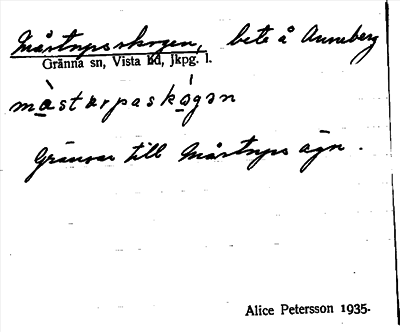 Mårtorpsskogen, bete å Anneberg
Gränna sn, Vista hd, jkpg. l.
mȧ̀starpaskȯ́gən
Gränsar till Mårtorps ägn.
Alice Petersson 1935.